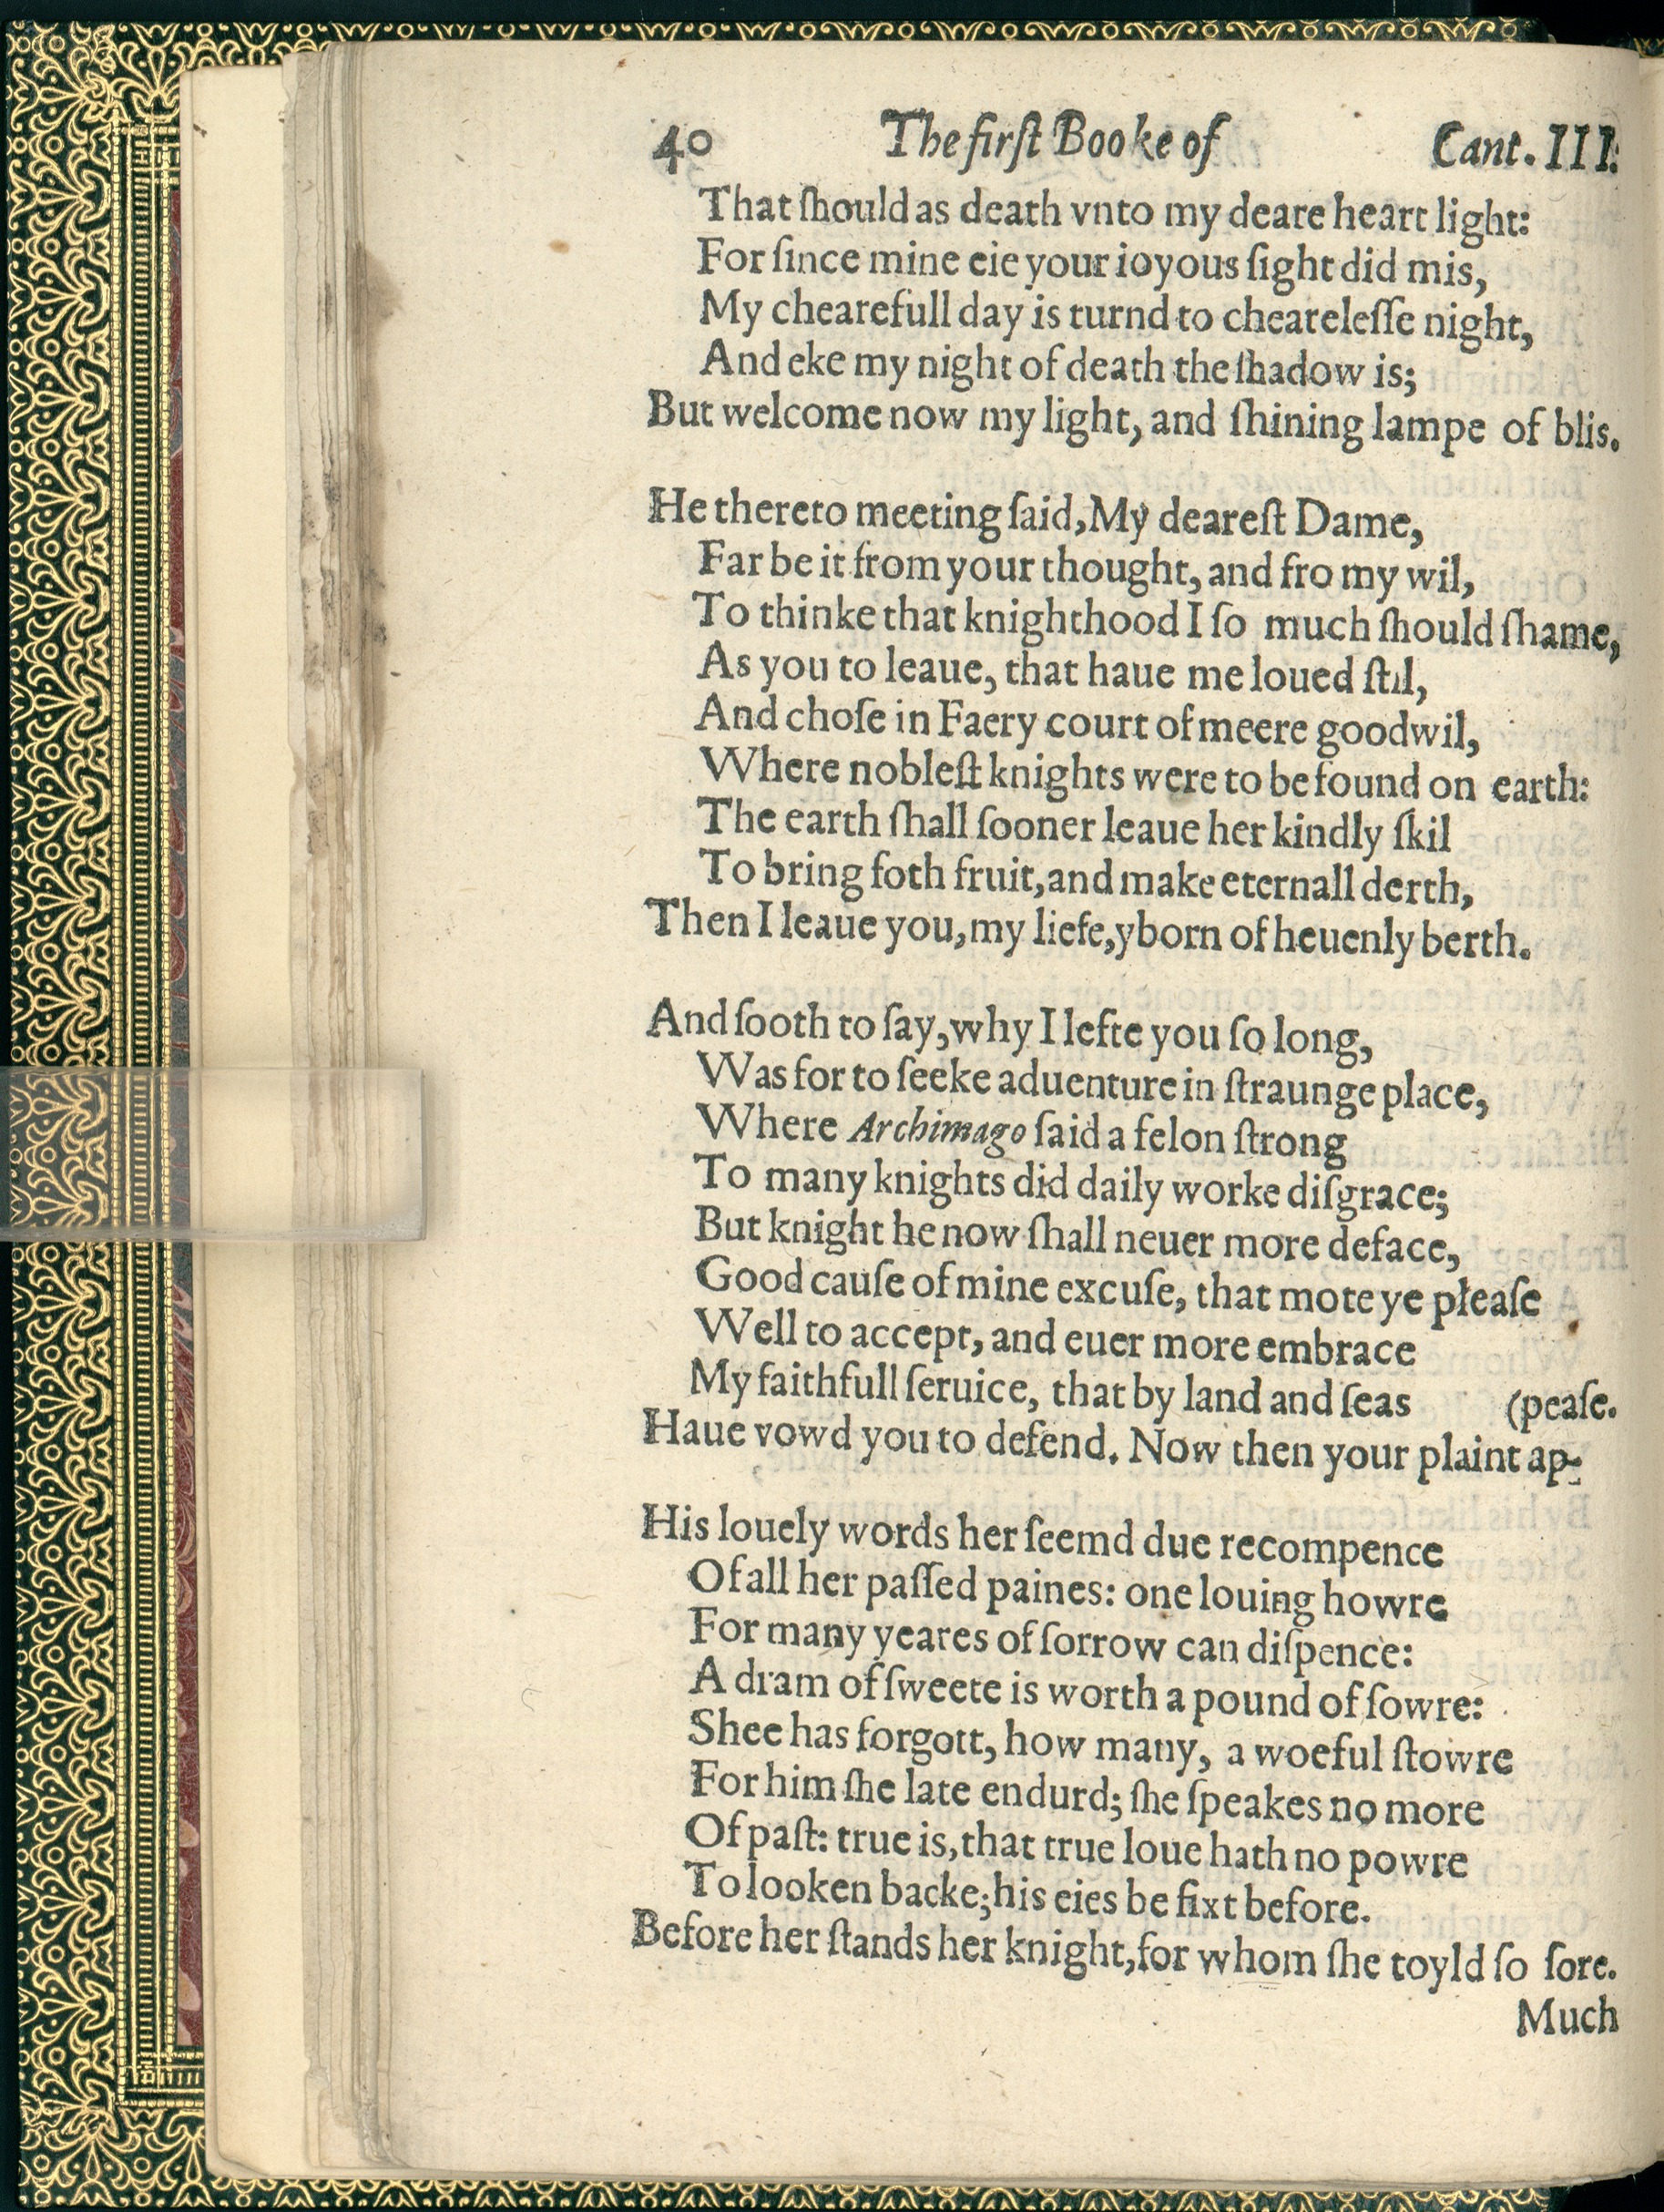 40 The firſt Booke of Cant. III.
That ſhould as death vnto my deare heart light:
For ſince mine eie your ioyous ſight did mis,
My chearefull day is turnd to cheareleſſe night,
And eke my night of death the ſhadow is;
But welcome now my light, and ſhining lampe of blis.
He thereto meeting ſaid, My deareſt Dame,
Far be it from your thought, and fro my wil,
To thinke that knighthood I ſo much ſhould ſhame,
As you to leaue, that haue me loued ſtil,
And choſe in Faery court of meere goodwil,
Where nobleſt knights were to be found on earth:
The earth ſhall ſooner leaue her kindly ſkil
To bring foth fruit, and make eternall derth,
Then I leaue you, my liefe, yborn of heuenly berth.
And ſooth to ſay, why I lefte you ſo long,
Was for to ſeeke aduenture in ſtraunge place,
Where Archimago ſaid a felon ſtrong
To many knights did daily worke diſgrace;
But knight he now ſhall neuer more deface,
Good cauſe of mine excuſe, that mote ye pleaſe
Well to accept, and euer more embrace
My faithfull ſeruice, that by land and ſeas (peaſe.
Haue vowd you to defend. Now then your plaint ap-
His louely words her ſeemd due recompence
Of all her paſſed paines: one louing howre
For many yeares of ſorrow can diſpence:
A dram of ſweete is worth a pound of ſowre:
Shee has forgott, how many, a woeful ſtowre
For him ſhe late endurd; ſhe ſpeakes no more
Of paſt: true is, that true loue hath no powre
To looken backe; his eies be fixt before.
Before her ſtands her knight, for whom ſhe toyld ſo ſore.
Much